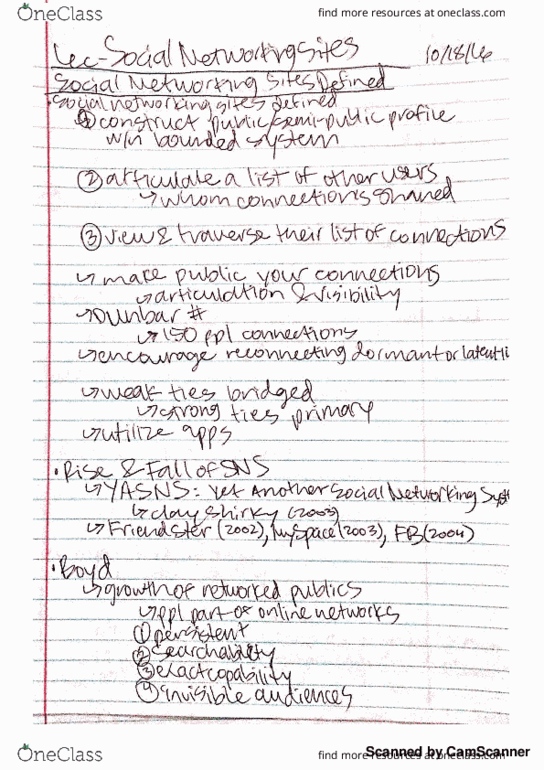 OneClass
find more resources at oneclass.com
Lec-Social Networking Sites 10/18/16
Social Networking Sites Defined
·social networking sites defined
① construct public/semi-public profile
w/n bounded system
② articulate a list of other users
↳ whom connection is shared
③ view & traverse their list of connections
↳ make public your connections
↳ articulation & visibility
↳ Dunbar #
↳ 150 ppl connections
↳ encourage reconnecting dormant or latent ti
↳ weak ties bridged
↳ strong ties primary
↳ utilize apps
· Rise & Fall of SNS
↳ YASNS: Yet Another Social Networking Syst
↳ clay shirky (2003)
↳ Friendster (2002), MySpace (2003), FB (2004)
· Boyd
↳ growth of networked publics
↳ ppl part of online networks
① persistent
② searchability
③ exact copability
④ invisible audiences
OneClass
find more resources at oneclass.com
Scanned by CamScanner